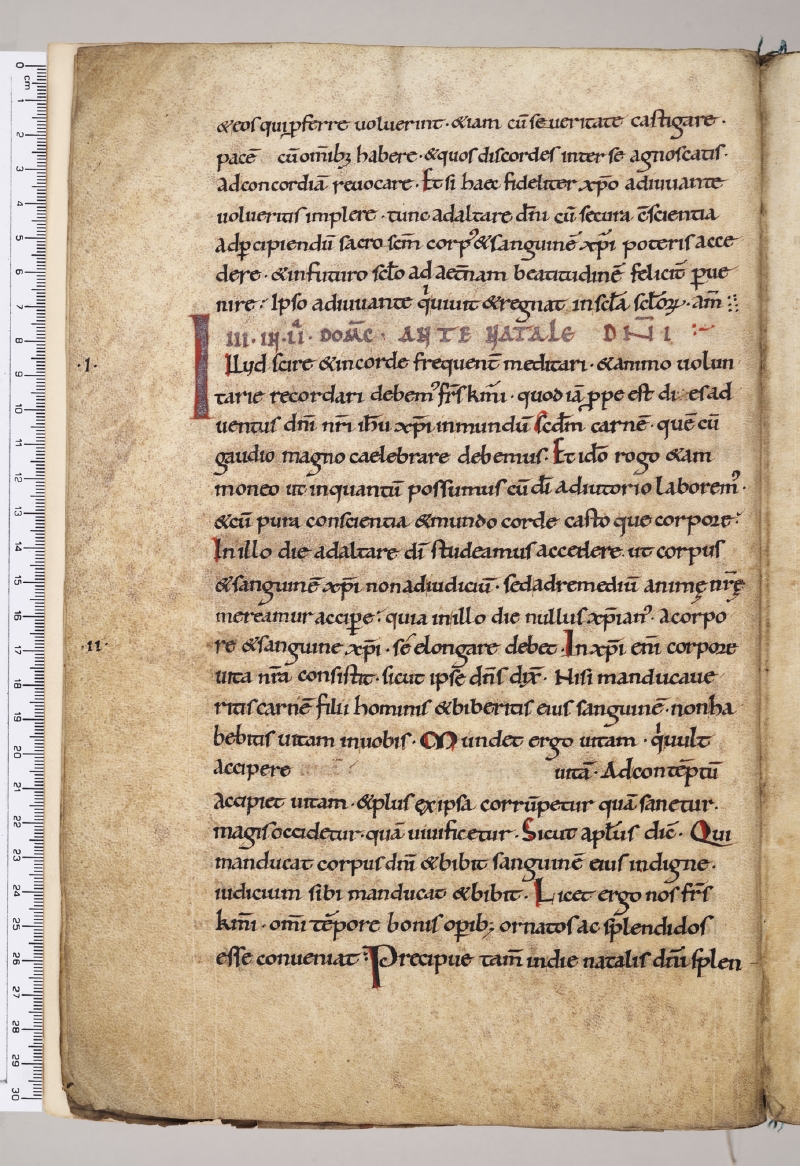 &eos qui pferre uoluerint · &iam cū se ueritate castigare ·
pacē cū omib; habere · &quos discordes inter se agnoscatis ·
ad concordiā reuocare · Et si haec fideliter xp̄o adiuuante
uolueritis implere · tunc ad altare dn̄i cū secura c̄scientia
ad pcipiendū sacro scm̄ corp' & sanguinē xp̄i poteris acce
dere · & in futuro sclo ad aetnam beatitudinē felicit̄ pue
nire : Ipso adiuuante qui uiuit & regnat in scla sclorꝝ · am̄
IIII · III · II · DOM̄C · ANTE NATALE DNI
· I ·
Illud scire & in corde frequent̄ meditari · & animo uolun
tarie recordari debem' frs̄ km̄i · quod iā ppe est dies ad
uentus dn̄i nr̄i ihū xp̄i in mundū scdm̄ carnē · quē cū
gaudio magno caelebrare debemus · Et idō rogo & am
moneo ut inquantū possumus cū dī adiutorio laborem' ·
& cū pura conscientia & mundo corde casto que corpore :
In illo die ad altare dī studeamus accedere · ut corpus
& sanguinē xp̄i non ad iudiciū · sed ad remediū animę nr̄ę
mereamur accipe : quia in illo die nullus xp̄ian' · a corpo
· II ·
re & sanguine xp̄i · se elongare debet · In xp̄i em̄ corpore
uita nr̄a consistit · sicut ipse dn̄s dix̄ · Nisi manducaue
ritis carnē filii hominis & biberitis eius sanguinē · non ha
bebitis uitam in uobis · Mundet ergo uitam · qui uult
accipere uitā · Ad contēptū
accipiet uitam · & plus ex ipsa corrūpetur quā sanetur ·
magis occidetur · quā uiuificetur · Sicut apl̄us dic̄ · Qui
manducat corpus dn̄i & bibit sanguinē eius indigne ·
iudicium sibi manducat & bibit · Licet ergo nos frs̄
km̄i · om̄i tēpore bonis opib; ornatos ac splendidos
esse conueniat : Precipue tam̄ in die natalis dn̄i splen